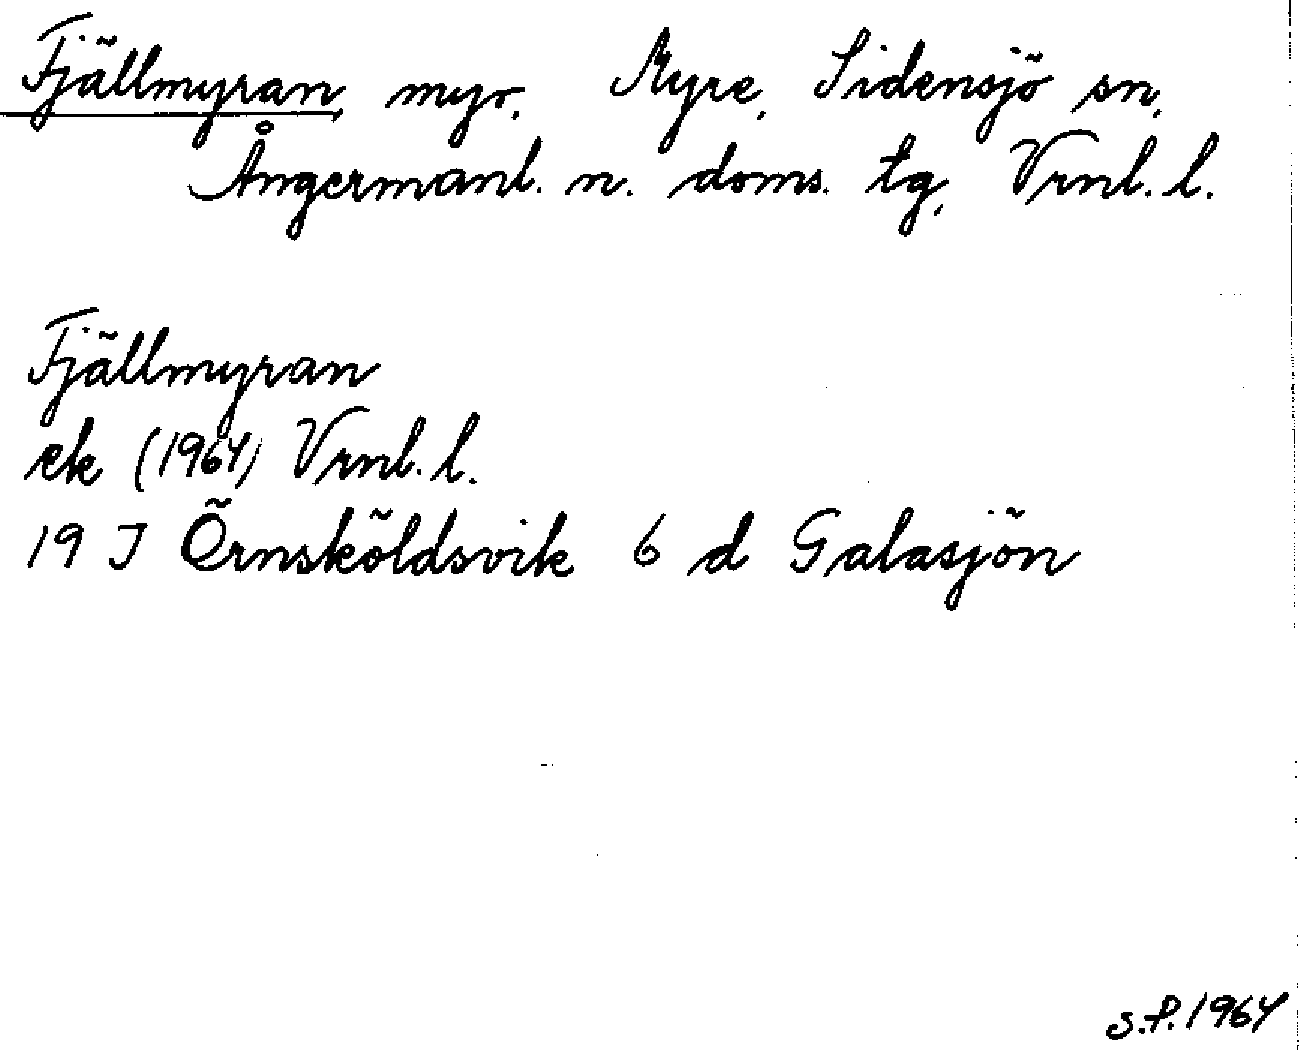 Fjällmyran, myr, Myre, Sidensjö sn,
Ångermanl. n. doms. tg, Vrnl. l.
Fjällmyran
ek (1964) Vrnl. l.
19 J Örnsköldsvik 6 d Galasjön
s.f. 1964